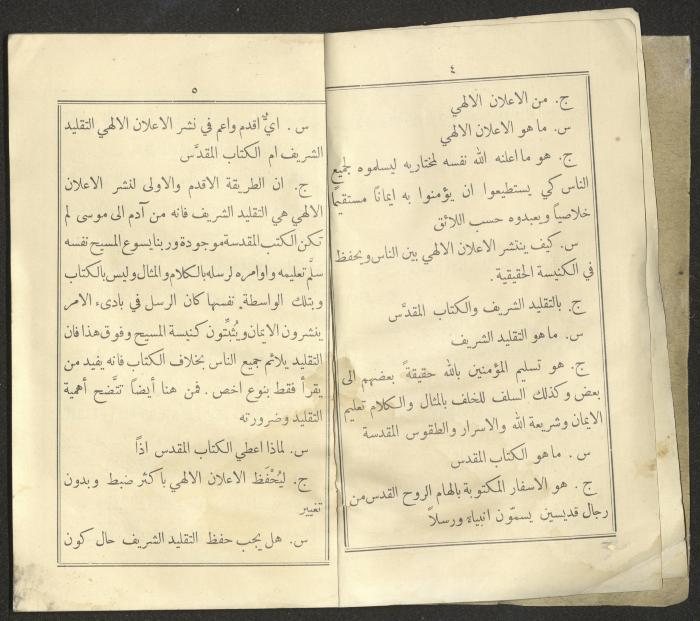 ٤
ج. من الاعلان الالهي
س. ما هو الاعلان الالهي
ج. هو ما اعلنه الله نفسه لمختاريه ليسلموه لجميع
الناس كي يستطيعوا ان يؤمنوا به ايمانًا مستقيمًا
خلاصيًا ويعبدوه حسب اللائق
س. كيف ينتشر الاعلان الالهي بين الناس ويحفظ
في الكنيسة الحقيقية.
ج. بالتقليد الشريف والكتاب المقدَّس
س. ما هو التقليد الشريف
ج. هو تسليم المؤمنين بالله حقيقةً بعضهم الى
بعض وكذلك السلف للخلف بالمثال والكلام تعليم
الايمان وشريعة الله والاسرار والطقوس المقدسة
س. ما هو الكتاب المقدس
ج. هو الاسفار المكتوبة بالهام الروح القدس من
رجال قديسين يسمّون انبياء ورسلاً
٥
س. ايٌّ اقدم واعم في نشر الاعلان الالهي التقليد
الشريف ام الكتاب المقدَّس
ج. ان الطريقة الاقدم والاولى لنشر الاعلان
الالهي هي التقليد الشريف فانه من آدم الى موسى لم
تكن الكتب المقدسة موجودة وربنا يسوع المسيح نفسه
سلَّم تعليمه واوامره لرسله بالكلام والمثال وليس بالكتاب
وبتلك الواسطة نفسها كان الرسل في بادىء الامر
ينشرون الايمان ويُثبّتون كنيسة المسيح وفوق هذا فان
التقليد يلائم جميع الناس بخلاف الكتاب فانه يفيد من
يقرأ فقط بنوع اخص. فمن هنا أيضاً تتَّضح أهمية
التقليد وضرورته
س. لماذا اعطي الكتاب المقدس اذًا
ج. ليُحْفَظ الاعلان الالهي باكثر ضبط وبدون
تغيير
س. هل يجب حفظ التقليد الشريف حال كون